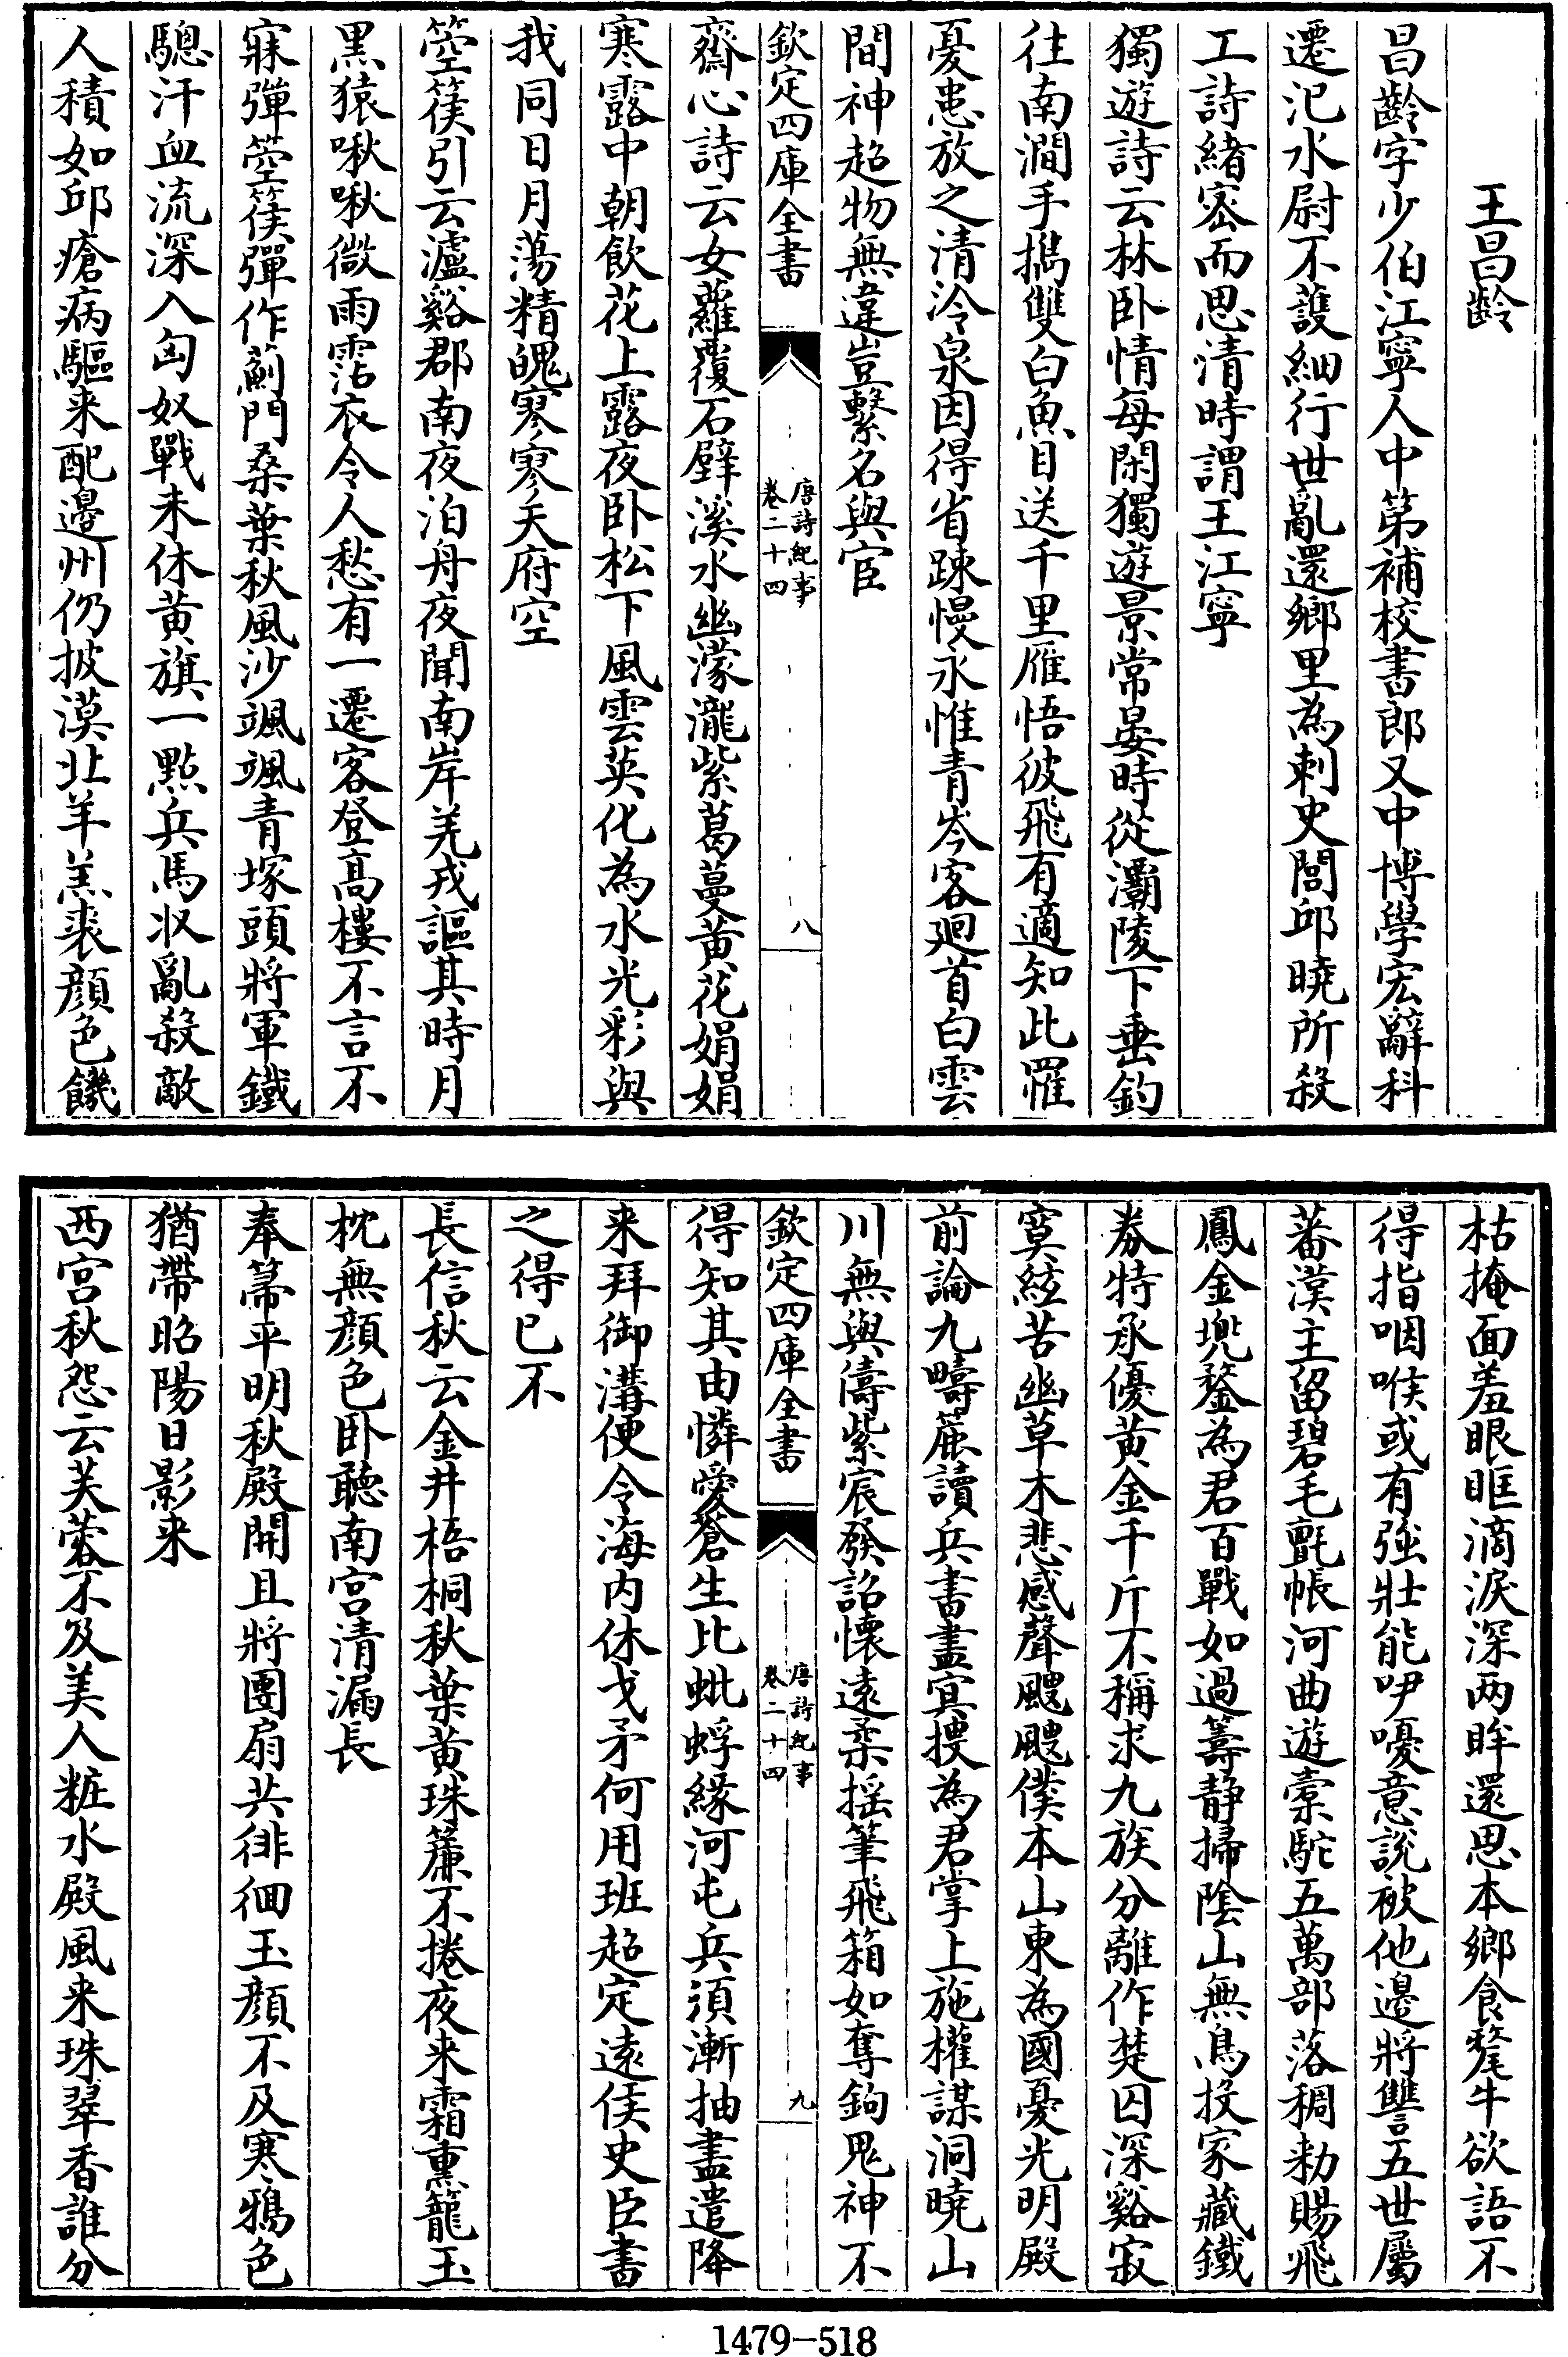 王昌齡
昌齡字少伯江寧人中第補校書郎又中博學宏辭科
遷汜水尉不䕶細行世亂還鄉里為刺史閭邱曉所殺
工詩緒密而思清時謂王江寧
獨遊詩云林卧情每閑獨遊景常晏時從灞陵下垂釣
往南澗手攜雙白魚目送千里雁悟彼飛有適知此罹
憂患放之清泠泉因得省踈慢永惟青岑客廻首白雲
間神超物無違豈繫名與宦
欽定四庫全書
唐詩紀事
卷二十四
八
齋心詩云女蘿覆石壁溪水幽濛瀧紫葛蔓黄花娟娟
寒露中朝飲花上露夜卧松下風雲英化為水光彩與
我同日月蕩精魄寥寥天府空
箜篌引云瀘谿郡南夜泊舟夜聞南岸羌戎謳其時月
黑猿啾啾微雨霑衣令人愁有一遷客登高樓不言不
寐彈箜篌彈作薊門桑葉秋風沙颯颯青塚頭將軍鐵
驄汗血流深入匈奴戰未休黄旗一點兵馬收亂殺敵
人積如邱瘡病驅来配邊州仍披漠北羊羔裘顔色饑
枯掩面羞眼眶滴淚深两眸還思本鄉食氂牛欲語不
得指咽喉或有強壯能咿嚘意説被他邊將讐五世屬
蕃漢主留碧毛氊帳河曲遊橐駝五萬部落稠勑賜飛
鳳金兠鍪為君百戰如過籌静掃隂山無鳥投家藏鐵
劵特承優黄金千斤不稱求九族分離作楚囚深谿寂
寞絃苦幽草木悲感聲颼颼僕本山東為國憂光明殿
前論九疇簏讀兵書盡冥搜為君掌上施權謀洞曉山
川無與儔紫宸發詔懷遠柔摇筆飛箱如奪鉤鬼神不
欽定四庫全書
唐詩紀事
卷二十四
九
得知其由憐愛蒼生比蚍蜉緣河屯兵須漸抽盡遣降
来拜御溝便令海内休戈矛何用班超定遠侯史臣書
之得已不
長信秋云金井梧桐秋葉黄珠簾不捲夜来霜熏籠玉
枕無顔色卧聴南宫清漏長
奉帚平明秋殿開且將團扇共徘徊玉顔不及寒鴉色
猶帶昭陽日影来
西宫秋怨云芙蓉不及美人粧水殿風来珠翠香誰分
1479-518